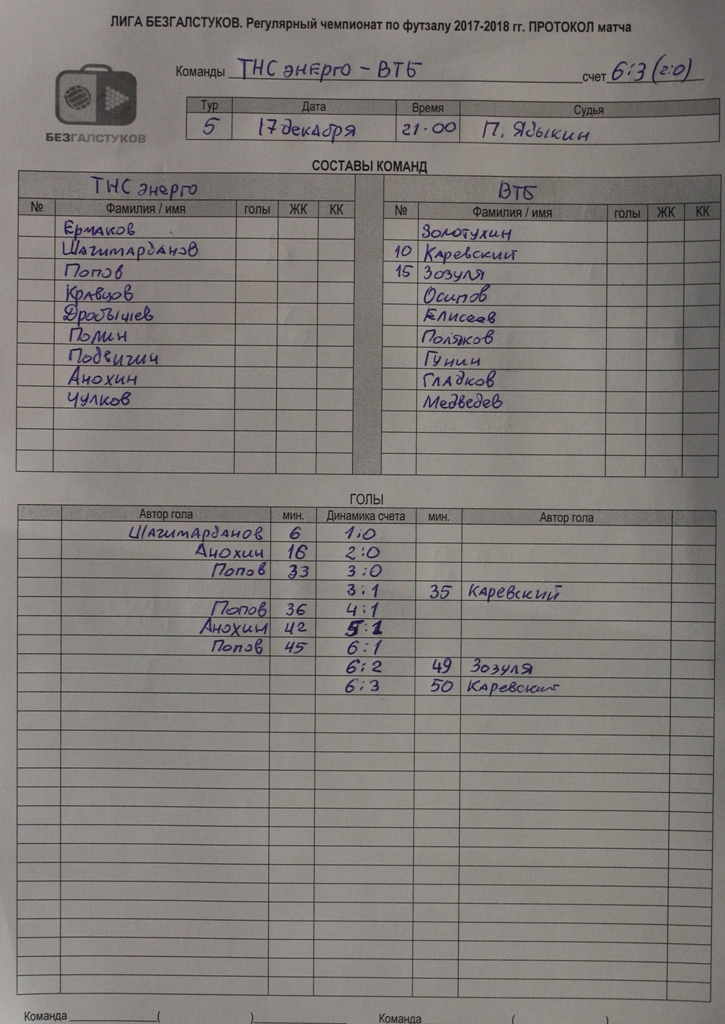 ЛИГА БЕЗГАЛСТУКОВ. Регулярный чемпионат по футзалу 2017-2018 гг. ПРОТОКОЛ матча
БЕЗГАЛСТУКОВ
Команды ТНС энерго - ВТБ счет 6:3 (2:0)
Тур Дата Время Судья
5 17 декабря 21-00 П. Ядыкин
СОСТАВЫ КОМАНД
ТНС энерго ВТБ
№ Фамилия / имя голы ЖК КК № Фамилия / имя голы ЖК КК
Ермаков Золотухин
Шагимарданов 10 Каревский
Попов 15 Зозуля
Кравцов Осипов
Дробышев Елисеев
Полин Поляков
Подвигин Гунин
Анохин Гладков
Чулков Медведев
ГОЛЫ
Автор гола мин. Динамика счета мин. Автор гола
Шагимарданов 6 1:0
Анохин 16 2:0
Попов 33 3:0
3:1 35 Каревский
Попов 36 4:1
Анохин 42 5:1
Попов 45 6:1
6:2 49 Зозуля
6:3 50 Каревский
Команда ( ) Команда ( )